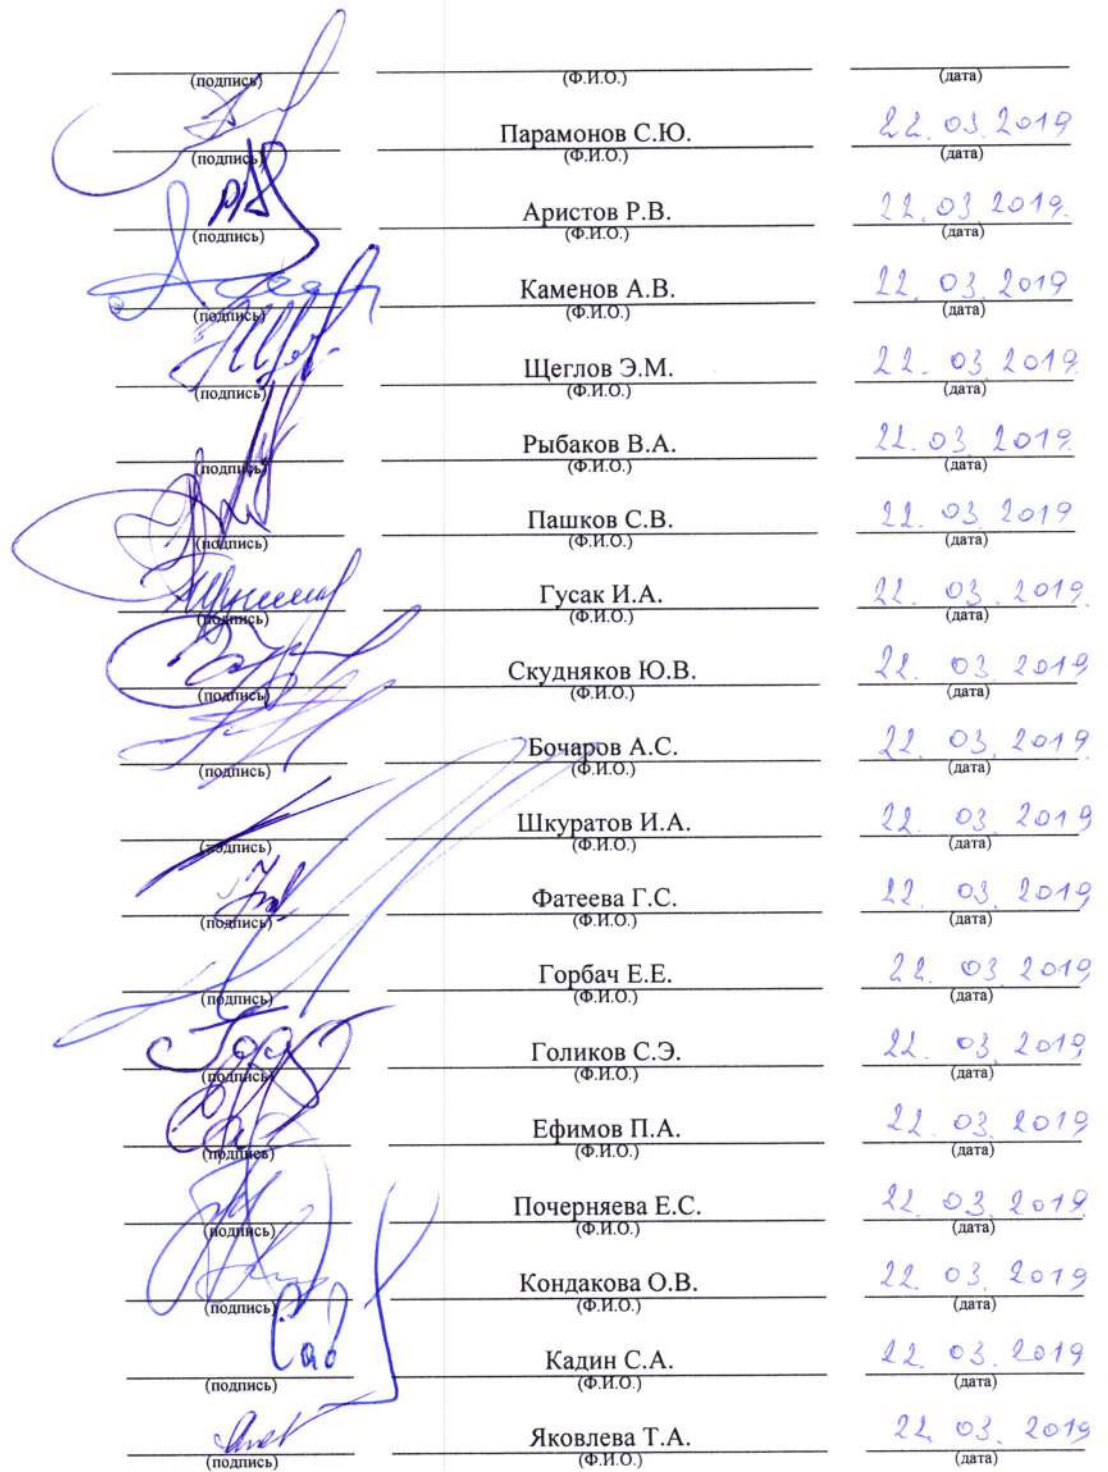 (подпись) (Ф.И.О.) (дата)
Парамонов С.Ю. 22.03.2019
(подпись) (Ф.И.О.) (дата)
Аристов Р.В. 22.03.2019.
(подпись) (Ф.И.О.) (дата)
Каменов А.В. 22.03.2019
(подпись) (Ф.И.О.) (дата)
Щеглов Э.М. 22.03.2019.
(подпись) (Ф.И.О.) (дата)
Рыбаков В.А. 22.03.2019.
(подпись) (Ф.И.О.) (дата)
Пашков С.В. 22.03.2019
(подпись) (Ф.И.О.) (дата)
Гусак И.А. 22.03.2019.
(подпись) (Ф.И.О.) (дата)
Скудняков Ю.В. 22.03.2019
(подпись) (Ф.И.О.) (дата)
Бочаров А.С. 22.03.2019
(подпись) (Ф.И.О.) (дата)
Шкуратов И.А. 22.03.2019
(подпись) (Ф.И.О.) (дата)
Фатеева Г.С. 22.03.2019
(подпись) (Ф.И.О.) (дата)
Горбач Е.Е. 22.03.2019
(подпись) (Ф.И.О.) (дата)
Голиков С.Э. 22.03.2019
(подпись) (Ф.И.О.) (дата)
Ефимов П.А. 22.03.2019
(подпись) (Ф.И.О.) (дата)
Почерняева Е.С. 22.03.2019
(подпись) (Ф.И.О.) (дата)
Кондакова О.В. 22.03.2019
(подпись) (Ф.И.О.) (дата)
Кадин С.А. 22.03.2019
(подпись) (Ф.И.О.) (дата)
Яковлева Т.А. 22.03.2019
(подпись) (Ф.И.О.) (дата)